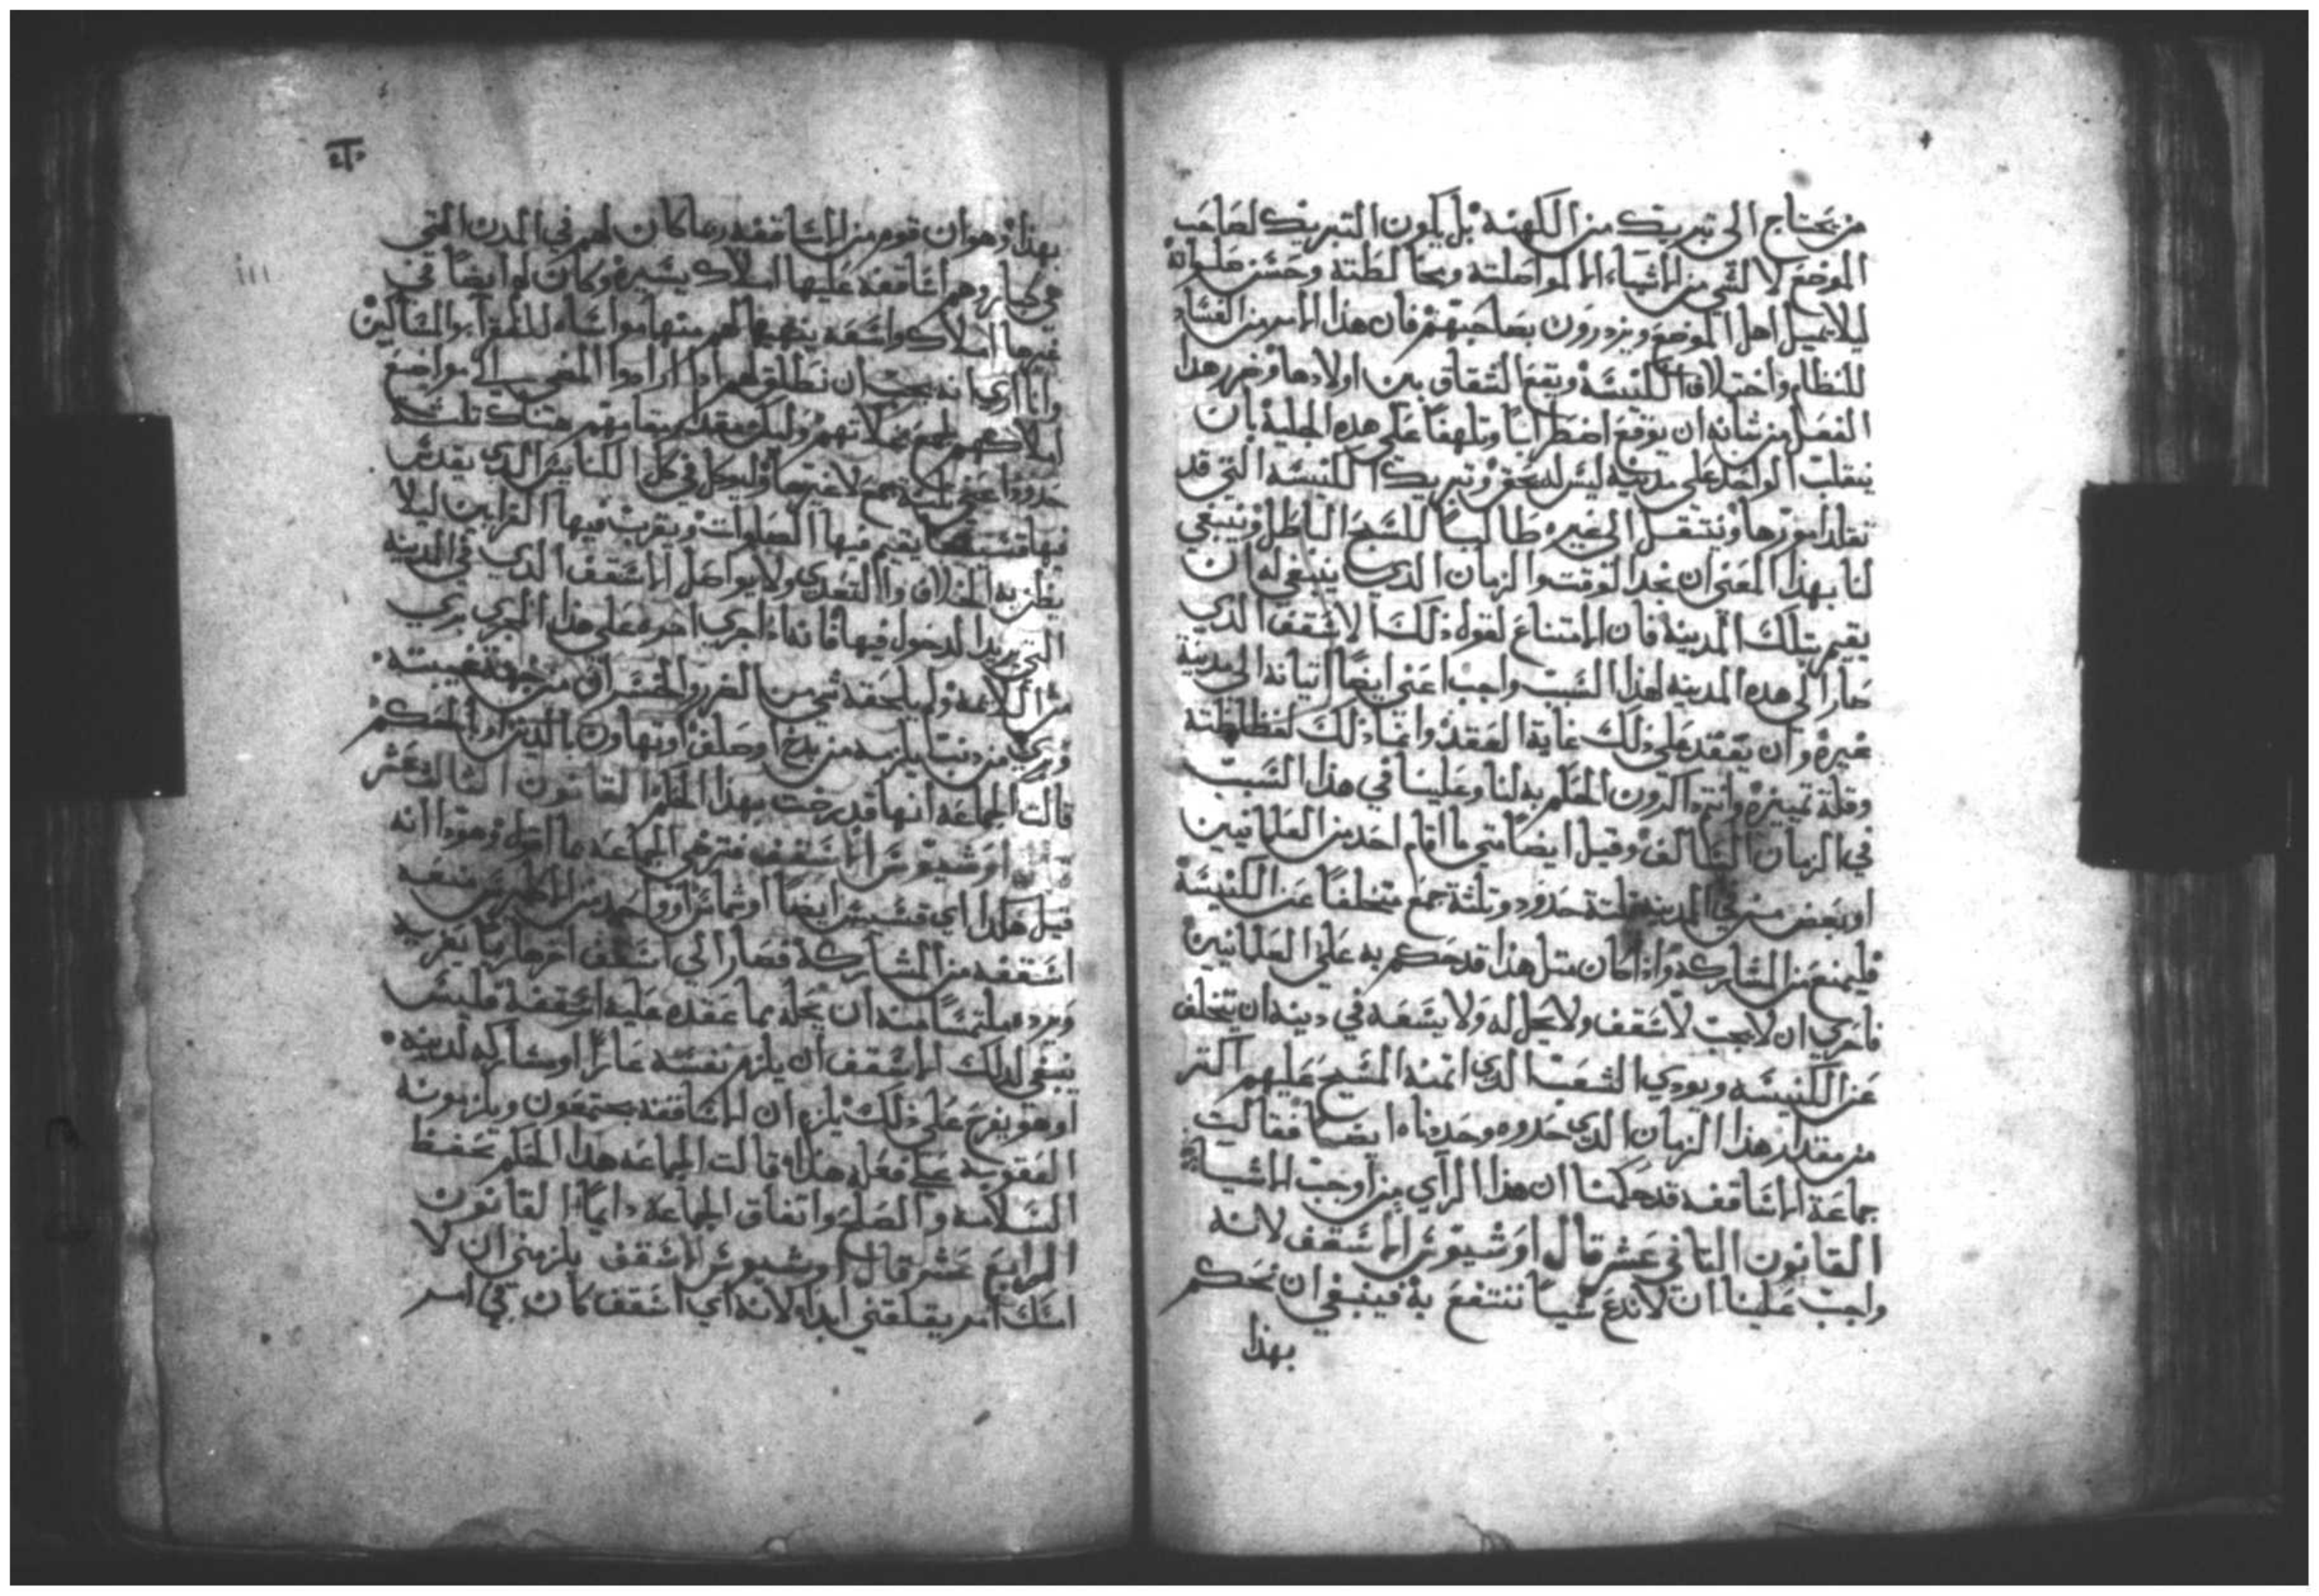 من يحتاج الى تبريك من الكهنة بل يكون التبريك لصاحب
الموضع لا لشي من الاشياء الا لمواصلته ومخالطته وحسن صلواته
ليلا يميل اهل الموضع ويزدرون بصاحبهم فان هذا الامر من الفساد
للنظام واختلاف الكنيسة ويقع الشقاق بين اولادها وضرر هذا
الفصل من شانه ان يوقع اضطرابا وتلهفا على هذه الجلية بان
ينقلب الواحد على مدينة ليس لديحق وتبريك الكنيسة التي قد
تقلد امورها وينتقل الى غيره طالبا للسبح الباطل وينبغي
لنا بهذا المعنى ان نحد الوقت والزمان الذي ينبغي له ان
يقيم بتلك المدينة فان الامتناع لقول ذلك الاسقف الذي
صار الى هذه المدينة لهذا السبب واجب اعني ايضا اتيانه الى مدينة
غيره وان يعقد على ذلك غاية العقد وانما ذلك لفظاظته
وقلة تميزه وانتم ذاكرون الحكم به لنا وعلينا في هذا السبب
في الزمان السالف وقيل ايضا متى ما اقام احد من العلمانيين
او بعض من في المدينة ثلثة حدود وثلثة جمع متخلفا عن الكنيسة
فليمنع من الشاركة واذا كان مثل هذا قد حكم به على العلمانيين
فاحري ان لا يجب لاسقف ولا يحل له ولا يسعه في دينه ان يتخلف
عن الكنيسة ويودي الشعب الذي ائتمنه المسيح عليهم اكثر
من مقدار هذا الزمان الذي حدوه وحديناه ايضا فقالت
جماعة الاساقفه قد حكمنا ان هذا الراي من اوجب الاشياء
القانون الثاني عشر قال اوشيوس الاسقف لانه
واجب علينا ان لا ندع شيا ننتفع به فينبغي ان نحكم
بهذا
١١١
بهذا وهو ان قوم من الاساقفه ربما كان لهم في المدن التي
هي كبار وهم اساقفه عليها املاك يسيرة وكان لهم ايضا في
غيرها املاك واسعه يتهيا لهم منها مواساه للفقرا والمساكين
وانا اري انه يجب ان نطلق لهم اذا ارادوا المضي الى مواضع
املاكهم لجمع غلاتهم وليكن مقدار مقامهم هناك ثلثة
حدود اعني ثلثة جمع لا غيرها وليوكل في كل الكنايس الذي يقدس
فيها قسيسا يقيم فيها الصلوات ويقرب فيها القرابين ليلا
يظن به الخلاف والتعدي ولا يواصل الاسقف الذي في المدينة
التي يريد الدخول فيها فانه اذا جرى امره على هذا المجرى بري
من اللائمة ولم يلحقه شي من الضرر والخسران من جهة غيبته
وبري من ذنب يلزمه من بذخ او صلف او تهاون بالدين او الحكم
قالت الجماعة انها قد رضت بهذا الحكم القانون الثالث عشر
قال اوشيوس الاسقف فترض الجماعة ما اقول وهو ذا انه
قيل هكذا اي قسيس ايضا او شماس او واحد من الاكليرس منعه
اسقفه من المشاركة فصار الى اسقف اخر هاربا يغريه
ويرده ملتمسا منه ان يحله مما عقده عليه اسقفه فليس
ينبغي لذلك الاسقف ان يلزم نفسه عارا او مشاركة لدينه
او هو يفرح على ذلك يلزم ان الاساقفه يجتمعون ويلزمونه
العقوبة على فعله هذا قالت الجماعة هذا الحكم يحفظ
السلامه والصلح واتفاق الجماعة دايما القانون
الرابع عشر قال اوشيوس الاسقف يلزمني ان لا
امسك امر يقلقني ابدا ولانه اي اسقف كان في امر